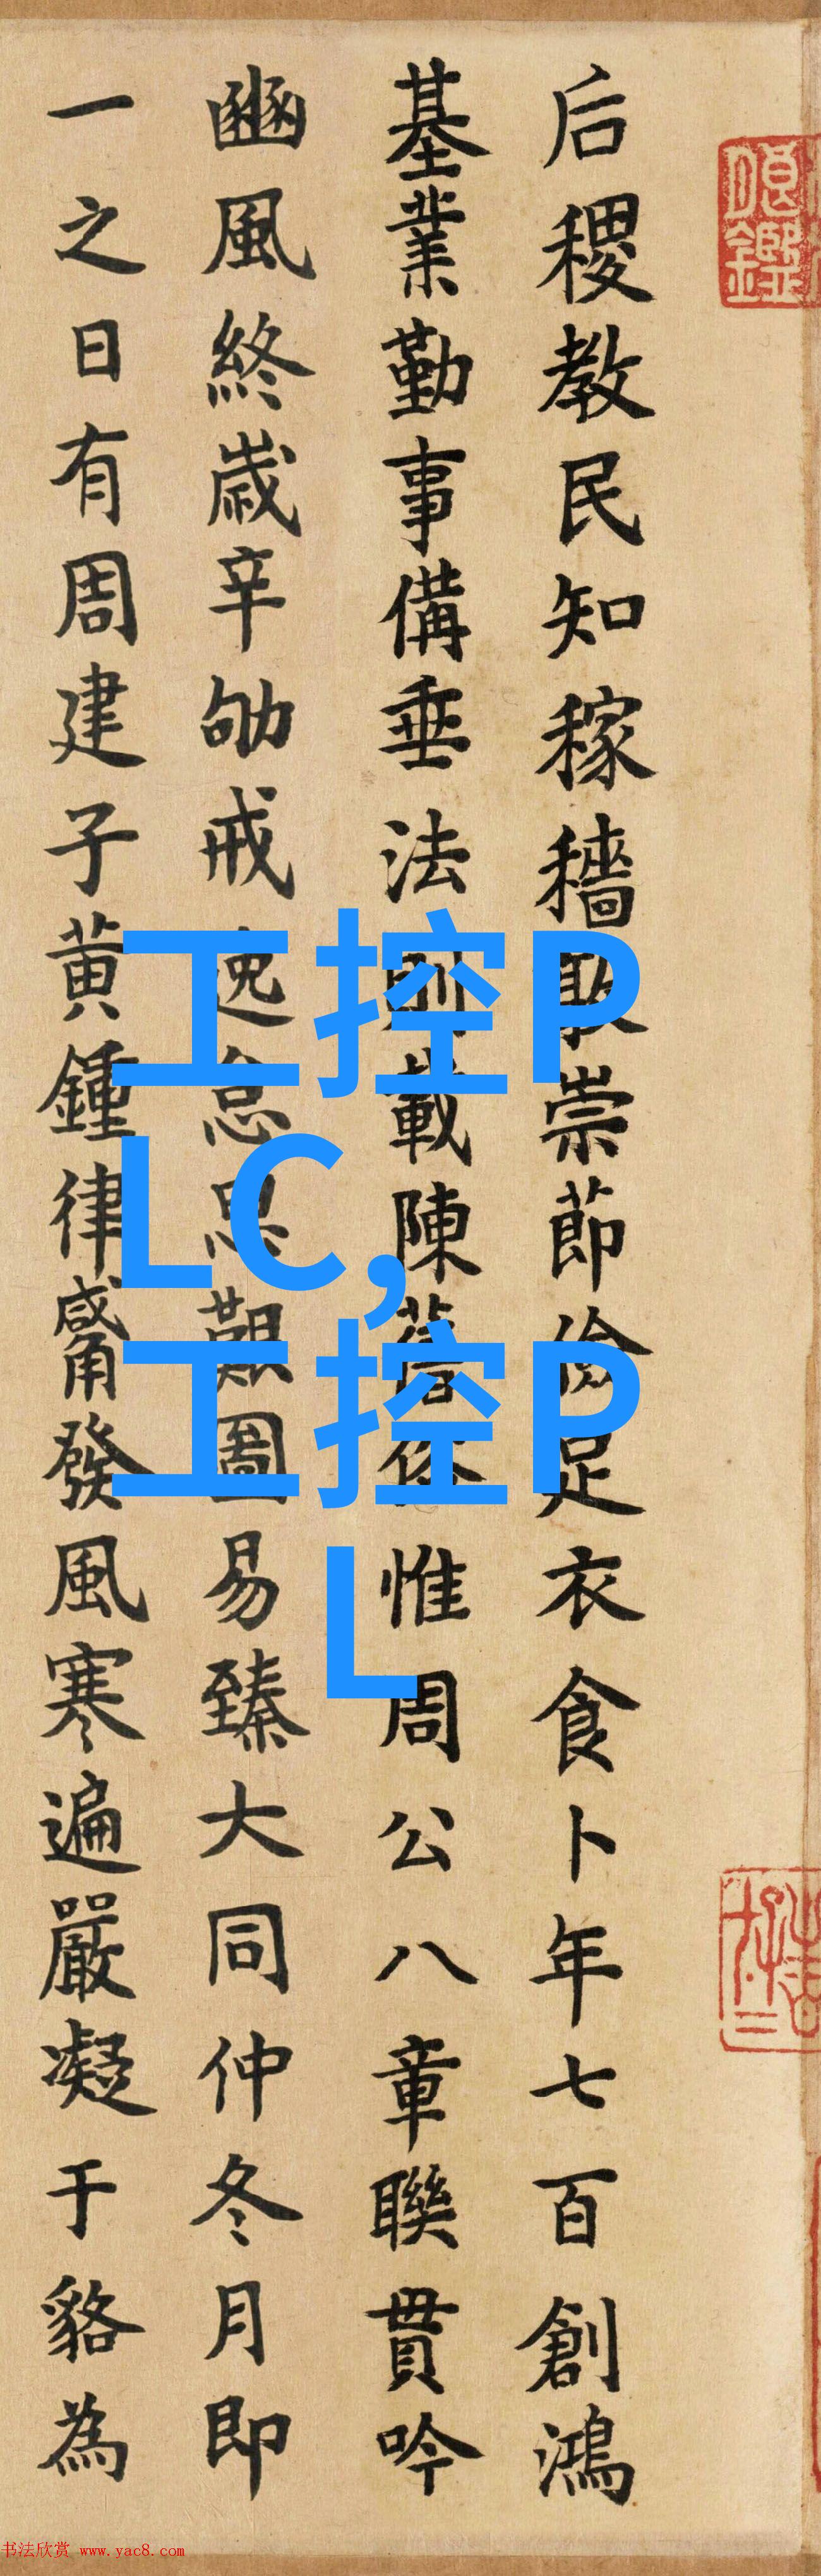 后稷教民知稼穡崇節儉足衣食卜年七百創鴻
基業勤事備垂法則載陳舊惟周公八章聯貫吟
豳風終歲辛劬戒逸怠思艱圖易臻大同仲冬月即
一之日有周建子黃鍾律觱發風寒遍嚴凝于貉為
工控P
LC,
工控P
L
书法欣赏 www.yac8.com